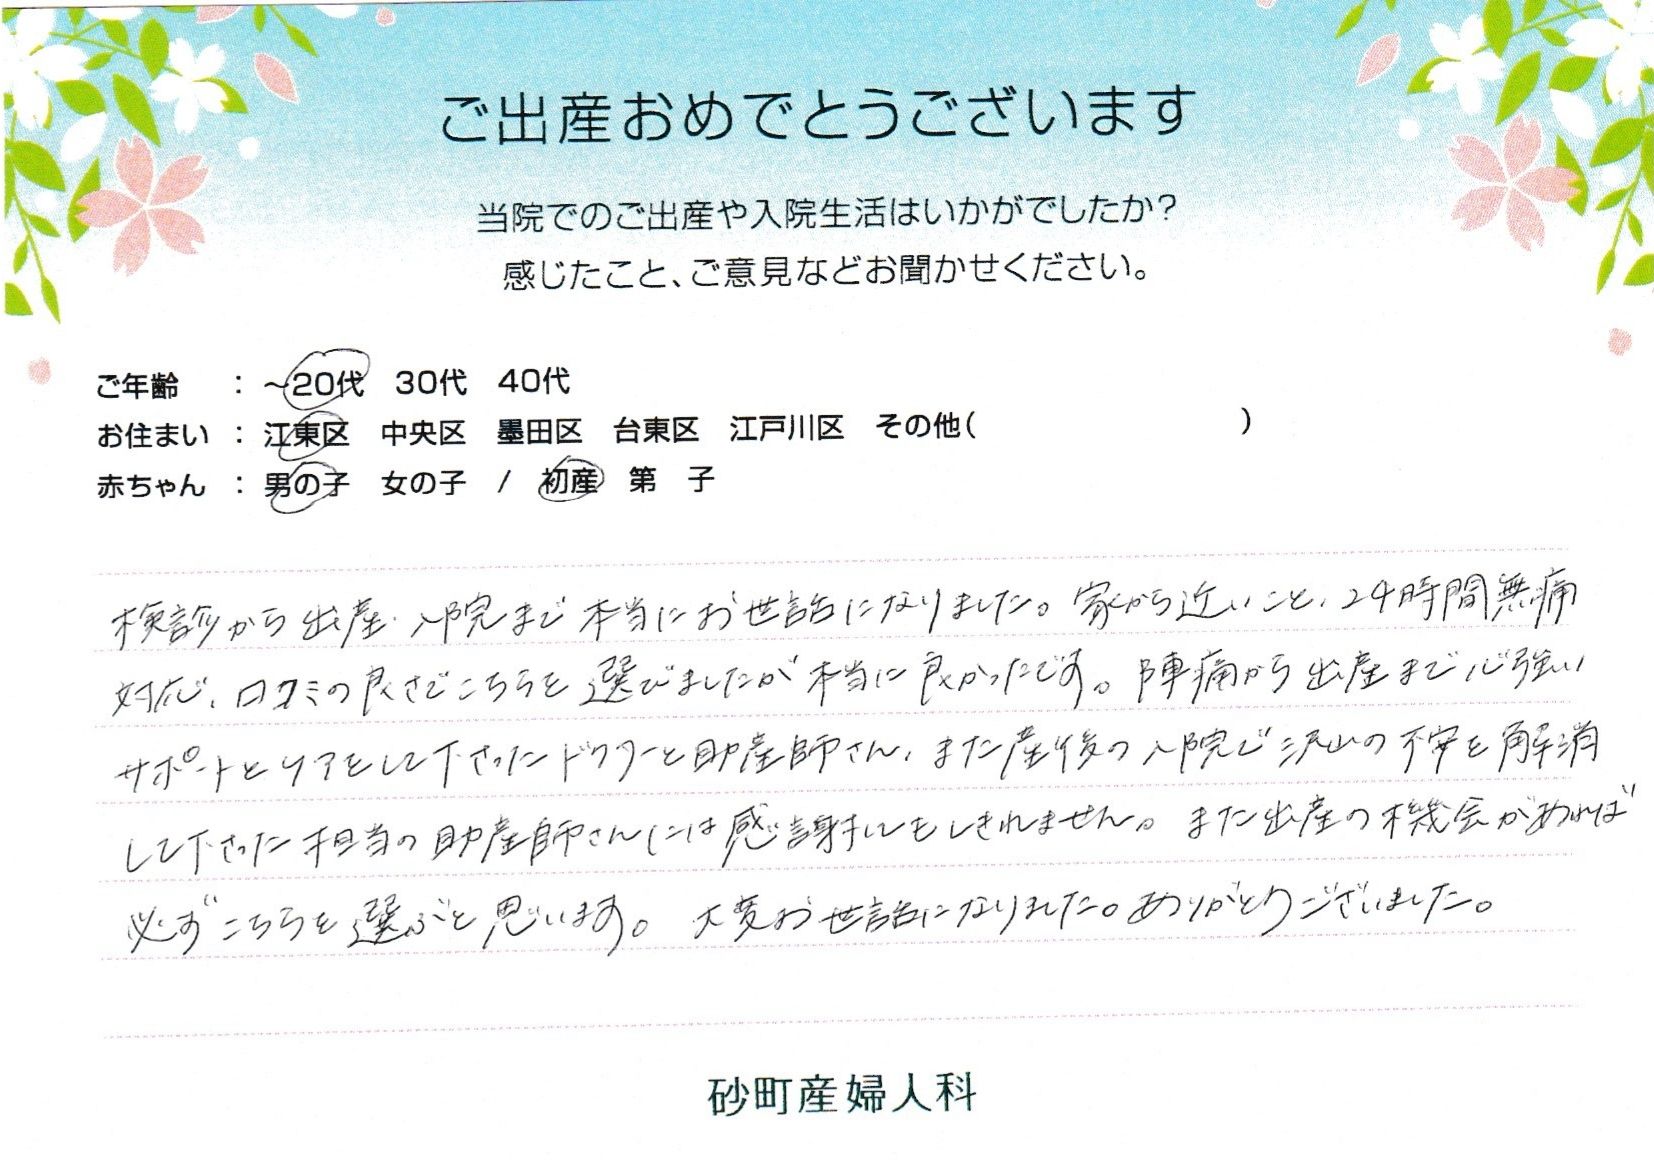 ご出産おめでとうございます
当院でのご出産や入院生活はいかがでしたか?
感じたこと、ご意見などお聞かせください。
ご年齢 : ~20代 30代 40代
お住まい : 江東区 中央区 墨田区 台東区 江戸川区 その他( )
赤ちゃん : 男の子 女の子 / 初産 第 子
検診から出産・入院まで本当にお世話になりました。家から近いこと、24時間無痛
対応、口コミの良さでこちらを選びましたが本当に良かったです。陣痛から出産まで心強い
サポートとケアをして下さったドクターと助産師さん、また産後の入院で沢山の不安を解消
して下さった担当の助産師さんには感謝してもしきれません。また出産の機会があれば
必ずこちらを選ぶと思います。大変お世話になりました。ありがとうございました。
砂町産婦人科